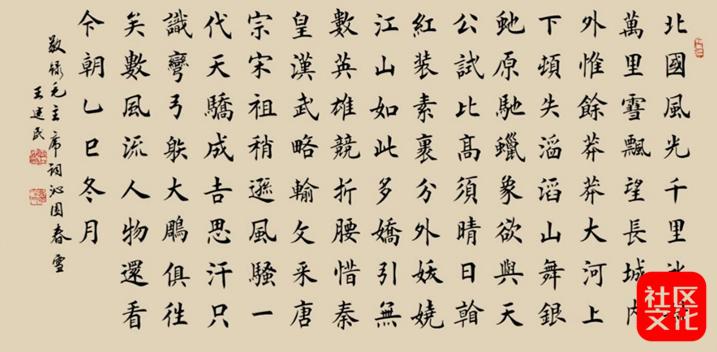 北國風光千里
萬里雪飄望長城内
外惟餘莽莽大河上
下頓失滔滔山舞銀
虵原馳蠟象欲與天
公試比髙須晴日
紅装素裹分外妖嬈
江山如此多嬌引無
數英雄競折腰惜秦
皇漢武略輸文采唐
宗宋祖稍遜風騷一
代天驕成吉思汗只
識彎弓䠶大鵰俱往
矣數風流人物還看
今朝乙巳冬月
敬錄毛主席詞沁園春雪
王建民
社区
文化